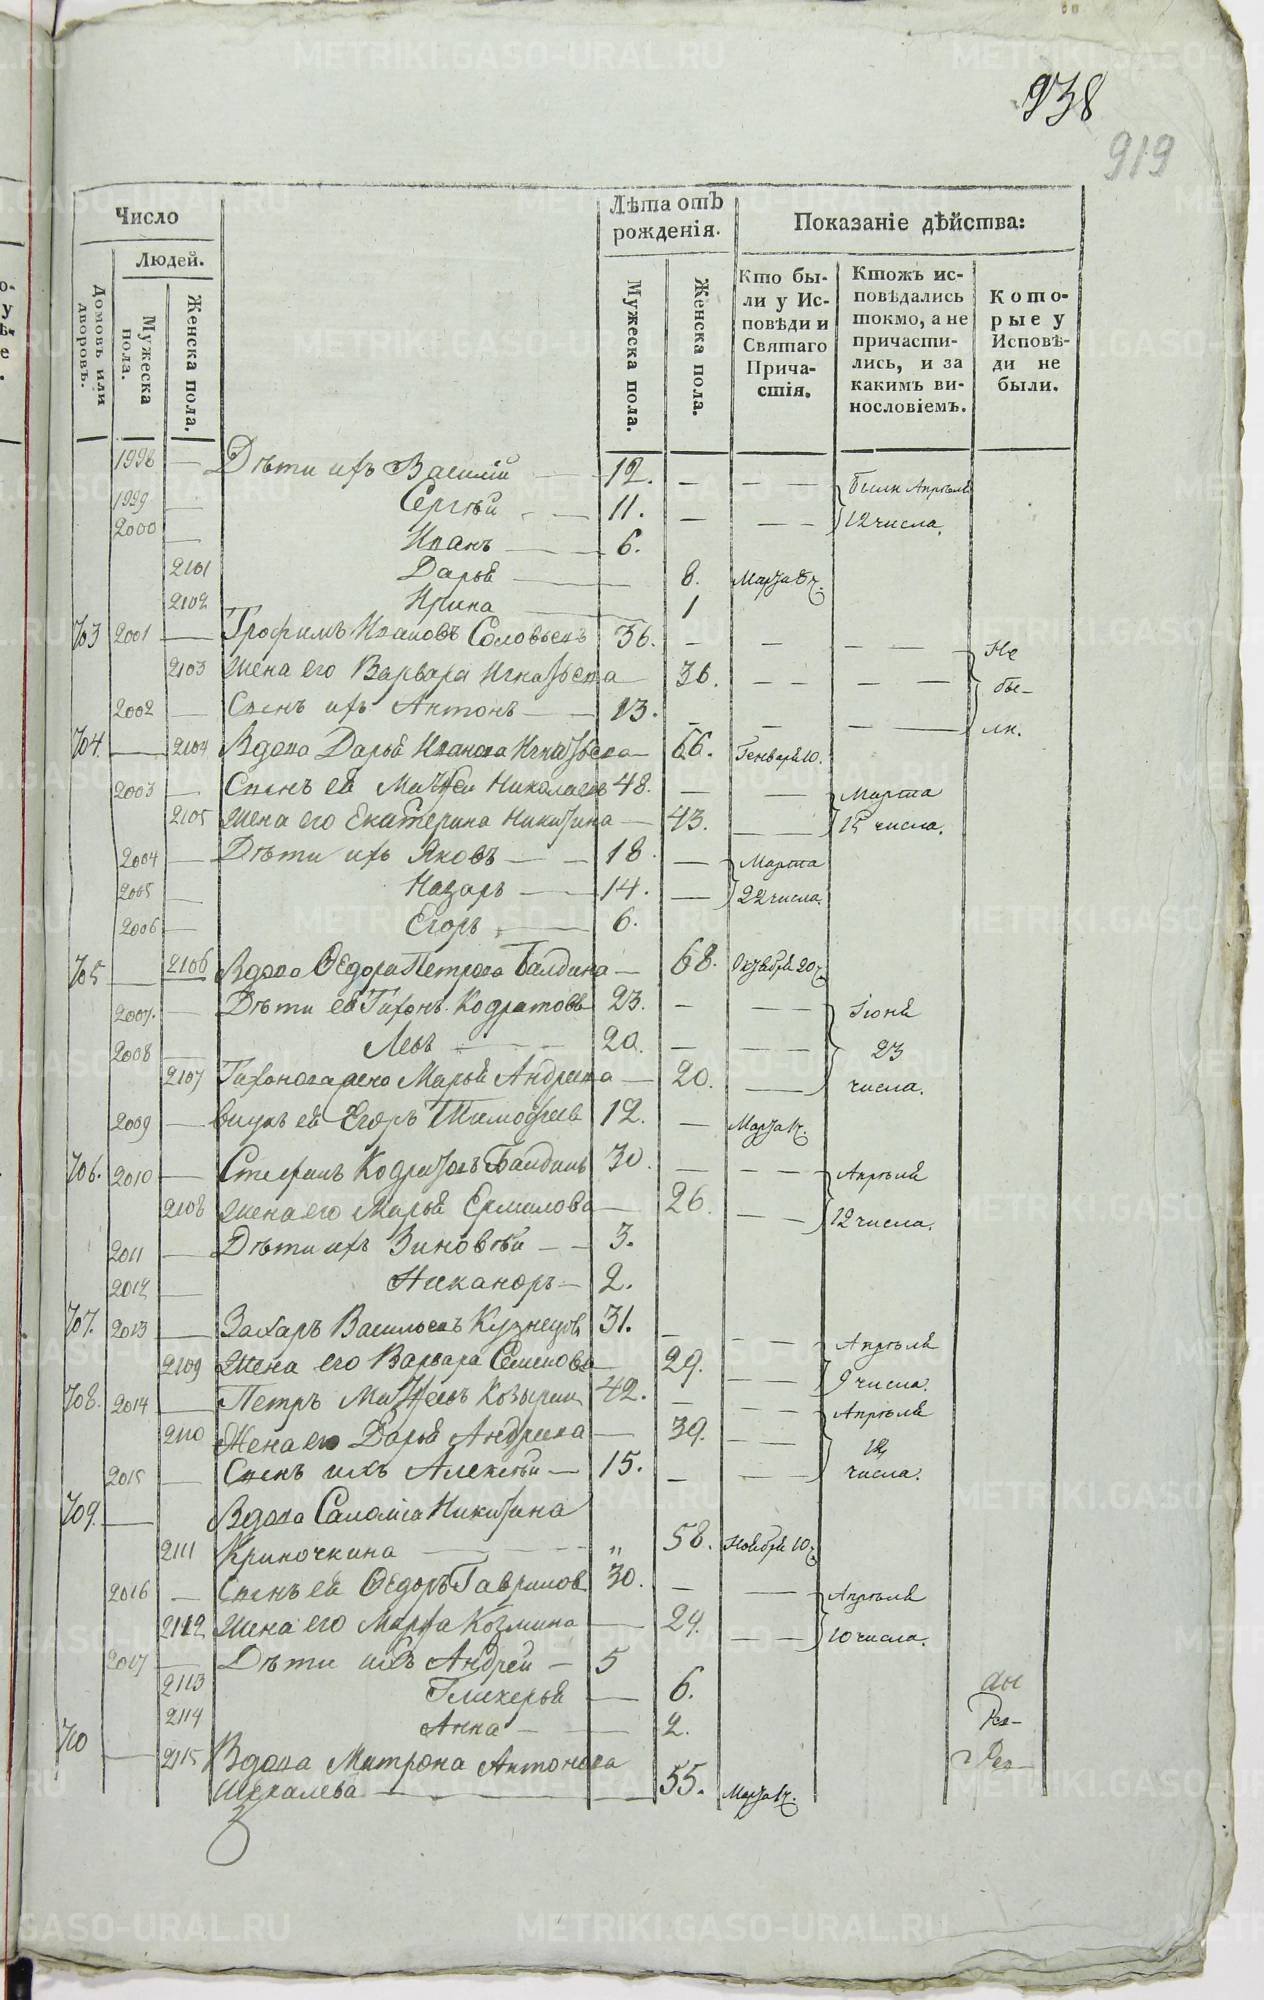 938
919
Число
Людей.
Домовъ или дворовъ.
Мужеска пола.
Женска пола.
Лѣта отъ
рожденія.
Мужеска пола.
Женска пола.
Показаніе дѣйства:
Кто бы-
ли у Ис-
повѣди и
Святаго
Прича-
стія.
Ктожъ ис-
повѣдались
токмо, а не
причасти-
лись, и за
какимъ ви-
нословіемъ.
Кото-
рые у
Исповѣ-
ди не
были.
1998 — Дѣти ихъ Василій — 12. — — — были Апрѣля
1999 — Сергѣй — — 11. — — — 12 числа.
2000 — Иванъ — — 6.
2101 Дарья — — 8. Марта 8 ч.
2102 Ирина — 1
703 2001 — Трофимъ Ивановъ Соловьевъ 36. — — — — Не
2103 Жена его Варвара Игнатьева — 36. — — — — бы-
2002 — Сынъ ихъ Антонъ — — 13. — — — ли.
704. — 2104 Вдова Дарья Иванова Игнатьева — 66. Генваря 10.
2003 — Сынъ ея Матѳей Николаевъ 48. — — Марта
2105 Жена его Екатерина Никитина — 43. — 15 числа.
2004 — Дѣти ихъ Яковъ — — 18. — Марта
2005 — Назаръ — 14. — 22 числа.
2006 — Егоръ — 6.
705 — 2106 Вдова Ѳедора Петрова Балдина — 68. Октября 20 ч
2007. — Дѣти ея Тихонъ Кодратовъ 23. — — — Іюня
2008 — Левъ — — — 20. — — — 23
2107 Тихонова жена Марья Андреева — 20. — числа.
2009 — внукъ ея Егоръ Тимофеевъ 12. — Марта 1 ч.
706. 2010 — Стефанъ Кодратовъ Балдинъ 30. — — — Апрѣля
2108 Жена его Марья Ермилова — 26. — — 12 числа.
2011 — Дѣти ихъ Зиновѣй — — 3.
2012 — Никаноръ — 2.
707. 2013 — Захаръ Васильевъ Кузнецовъ 31. — — — Апрѣля
2109 Жена его Варвара Семенова — 29. — — 9 числа.
708. 2014 — Петръ Матѳеевъ Козыринъ 42. — — — Апрѣля
2110 Жена его Дарья Андреева — 39. — — 12
2015 — Сынъ ихъ Алексѣй — 15. — — — числа.
709. — Вдова Саломія Никитина
2111 Криночкина — — — „ 58. Ноября 10 ч
2016 — Сынъ ея Ѳедоръ Гавриловъ 30. — — Апрѣля
2112 Жена его Марфа Козмина — 24. — — 10 числа.
2017 — Дѣти ихъ Андрей — 5
2113 Гликерья — 6.
2114 Анна — — 2.
710 — 2115 Вдова Матрона Антонова
Шекалева — — 55. Марта 1 ч.